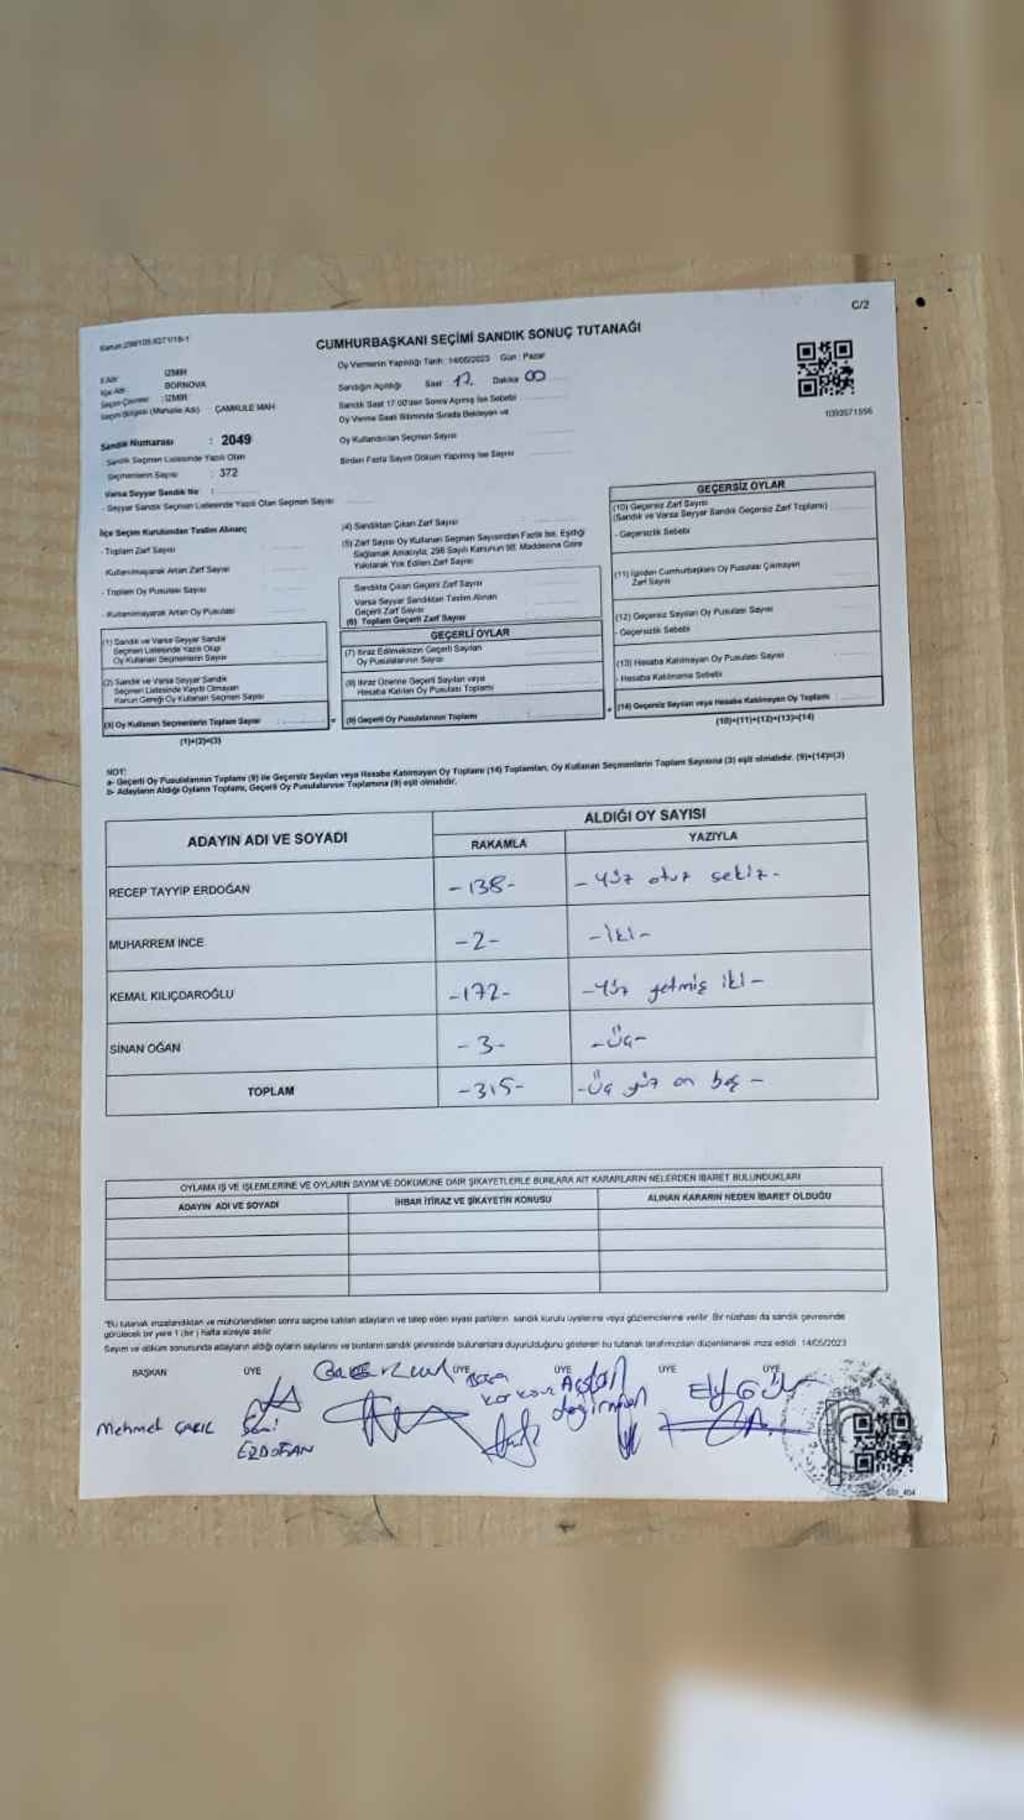 C/2
CUMHURBAŞKANI SEÇİMİ SANDIK SONUÇ TUTANAĞI
Oy Vermenin Yapıldığı Tarih : 14/05/2023 Gün : Pazar
İl Adı : İZMİR
İlçe Adı : BORNOVA
Seçim Çevresi : İZMİR
Seçim Bölgesi (Mahalle Adı) : ÇAMKULE MAH.
Sandığın Açıldığı Saat : 17 Dakika 00
Sandık Saat 17:00'den Sonra Açılmış İse Sebebi
Oy Verme Saati Bitiminde Sırada Bekleyen ve
Oy Kullandırılan Seçmen Sayısı
Birden Fazla Sayım Döküm Yapılmış İse Sayısı
1093571556
Sandık Numarası : 2049
Sandık Seçmen Listesinde Yazılı Olan
Seçmenlerin Sayısı : 372
Varsa Seyyar Sandık No :
- Seyyar Sandık Seçmen Listesinde Yazılı Olan Seçmen Sayısı
İlçe Seçim Kurulundan Teslim Alınan;
- Toplam Zarf Sayısı
- Kullanılmayarak Artan Zarf Sayısı
- Toplam Oy Pusulası Sayısı
- Kullanılmayarak Artan Oy Pusulası
(1) Sandık ve Varsa Seyyar Sandık
Seçmen Listesinde Yazılı Olup
Oy Kullanan Seçmenlerin Sayısı
(2) Sandık ve Varsa Seyyar Sandık
Seçmen Listesinde Kayıtlı Olmayan
Kanun Gereği Oy Kullanan Seçmen Sayısı
(3) Oy Kullanan Seçmenlerin Toplam Sayısı
(1)+(2)=(3)
(4) Sandıktan Çıkan Zarf Sayısı
(5) Zarf Sayısı Oy Kullanan Seçmen Sayısından Fazla İse, Eşitliği
Sağlamak Amacıyla; 298 Sayılı Kanunun 98. Maddesine Göre
Yakılarak Yok Edilen Zarf Sayısı
Sandıkta Çıkan Geçerli Zarf Sayısı
Varsa Seyyar Sandıktan Teslim Alınan
Geçerli Zarf Sayısı
(6) Toplam Geçerli Zarf Sayısı
GEÇERLİ OYLAR
(7) İtiraz Edilmeksizin Geçerli Sayılan
Oy Pusulalarının Sayısı
(8) İtiraz Üzerine Geçerli Sayılan veya
Hesaba Katılan Oy Pusulası Toplamı
(9) Geçerli Oy Pusulalarının Toplamı
GEÇERSİZ OYLAR
(10) Geçersiz Zarf Sayısı
(Sandık ve Varsa Seyyar Sandık Geçersiz Zarf Toplamı)
- Geçersizlik Sebebi
(11) İçinden Cumhurbaşkanı Oy Pusulası Çıkmayan
Zarf Sayısı
(12) Geçersiz Sayılan Oy Pusulası Sayısı
- Geçersizlik Sebebi
(13) Hesaba Katılmayan Oy Pusulası Sayısı
- Hesaba Katılmama Sebebi
(14) Geçersiz Sayılan veya Hesaba Katılmayan Oy Toplamı
(10)+(11)+(12)+(13)=(14)
NOT:
a- Geçerli Oy Pusulalarının Toplamı (9) ile Geçersiz Sayılan veya Hesaba Katılmayan Oy Toplamı (14) Toplamları, Oy Kullanan Seçmenlerin Toplam Sayısına (3) eşit olmalıdır. (9)+(14)=(3)
b- Adayların Aldığı Oyların Toplamı, Geçerli Oy Pusulalarının Toplamına (9) eşit olmalıdır.
ADAYIN ADI VE SOYADI
ALDIĞI OY SAYISI
RAKAMLA YAZIYLA
RECEP TAYYİP ERDOĞAN -138- - yüz otuz sekiz -
MUHARREM İNCE -2- - iki -
KEMAL KILIÇDAROĞLU -172- - yüz yetmiş iki -
SİNAN OĞAN -3- - üç -
TOPLAM -315- - üç yüz on beş -
OYLAMA İŞ VE İŞLEMLERİNE VE OYLARIN SAYIM VE DÖKÜMÜNE DAİR ŞİKAYETLERLE BUNLARA AİT KARARLARIN NELERDEN İBARET BULUNDUKLARI
ADAYIN ADI VE SOYADI İHBAR İTİRAZ VE ŞİKAYETİN KONUSU ALINAN KARARIN NEDEN İBARET OLDUĞU
"Bu tutanak imzalandıktan ve mühürlendikten sonra seçime katılan adayların ve talep eden siyasi partilerin sandık kurulu üyelerine veya gözlemcilerine verilir. Bir nüshası da sandık çevresinde
görülecek bir yere 1 (bir) hafta süreyle asılır.
Sayım ve döküm sonunda adayların aldığı oyların sayılarını ve bunların sandık çevresinde bulunanlara duyurulduğunu gösteren bu tutanak tarafımızdan düzenlenerek imza edildi. 14/05/2023
BAŞKAN ÜYE ÜYE ÜYE ÜYE ÜYE
Mehmet
ERDOĞAN
Aslan
değirmen